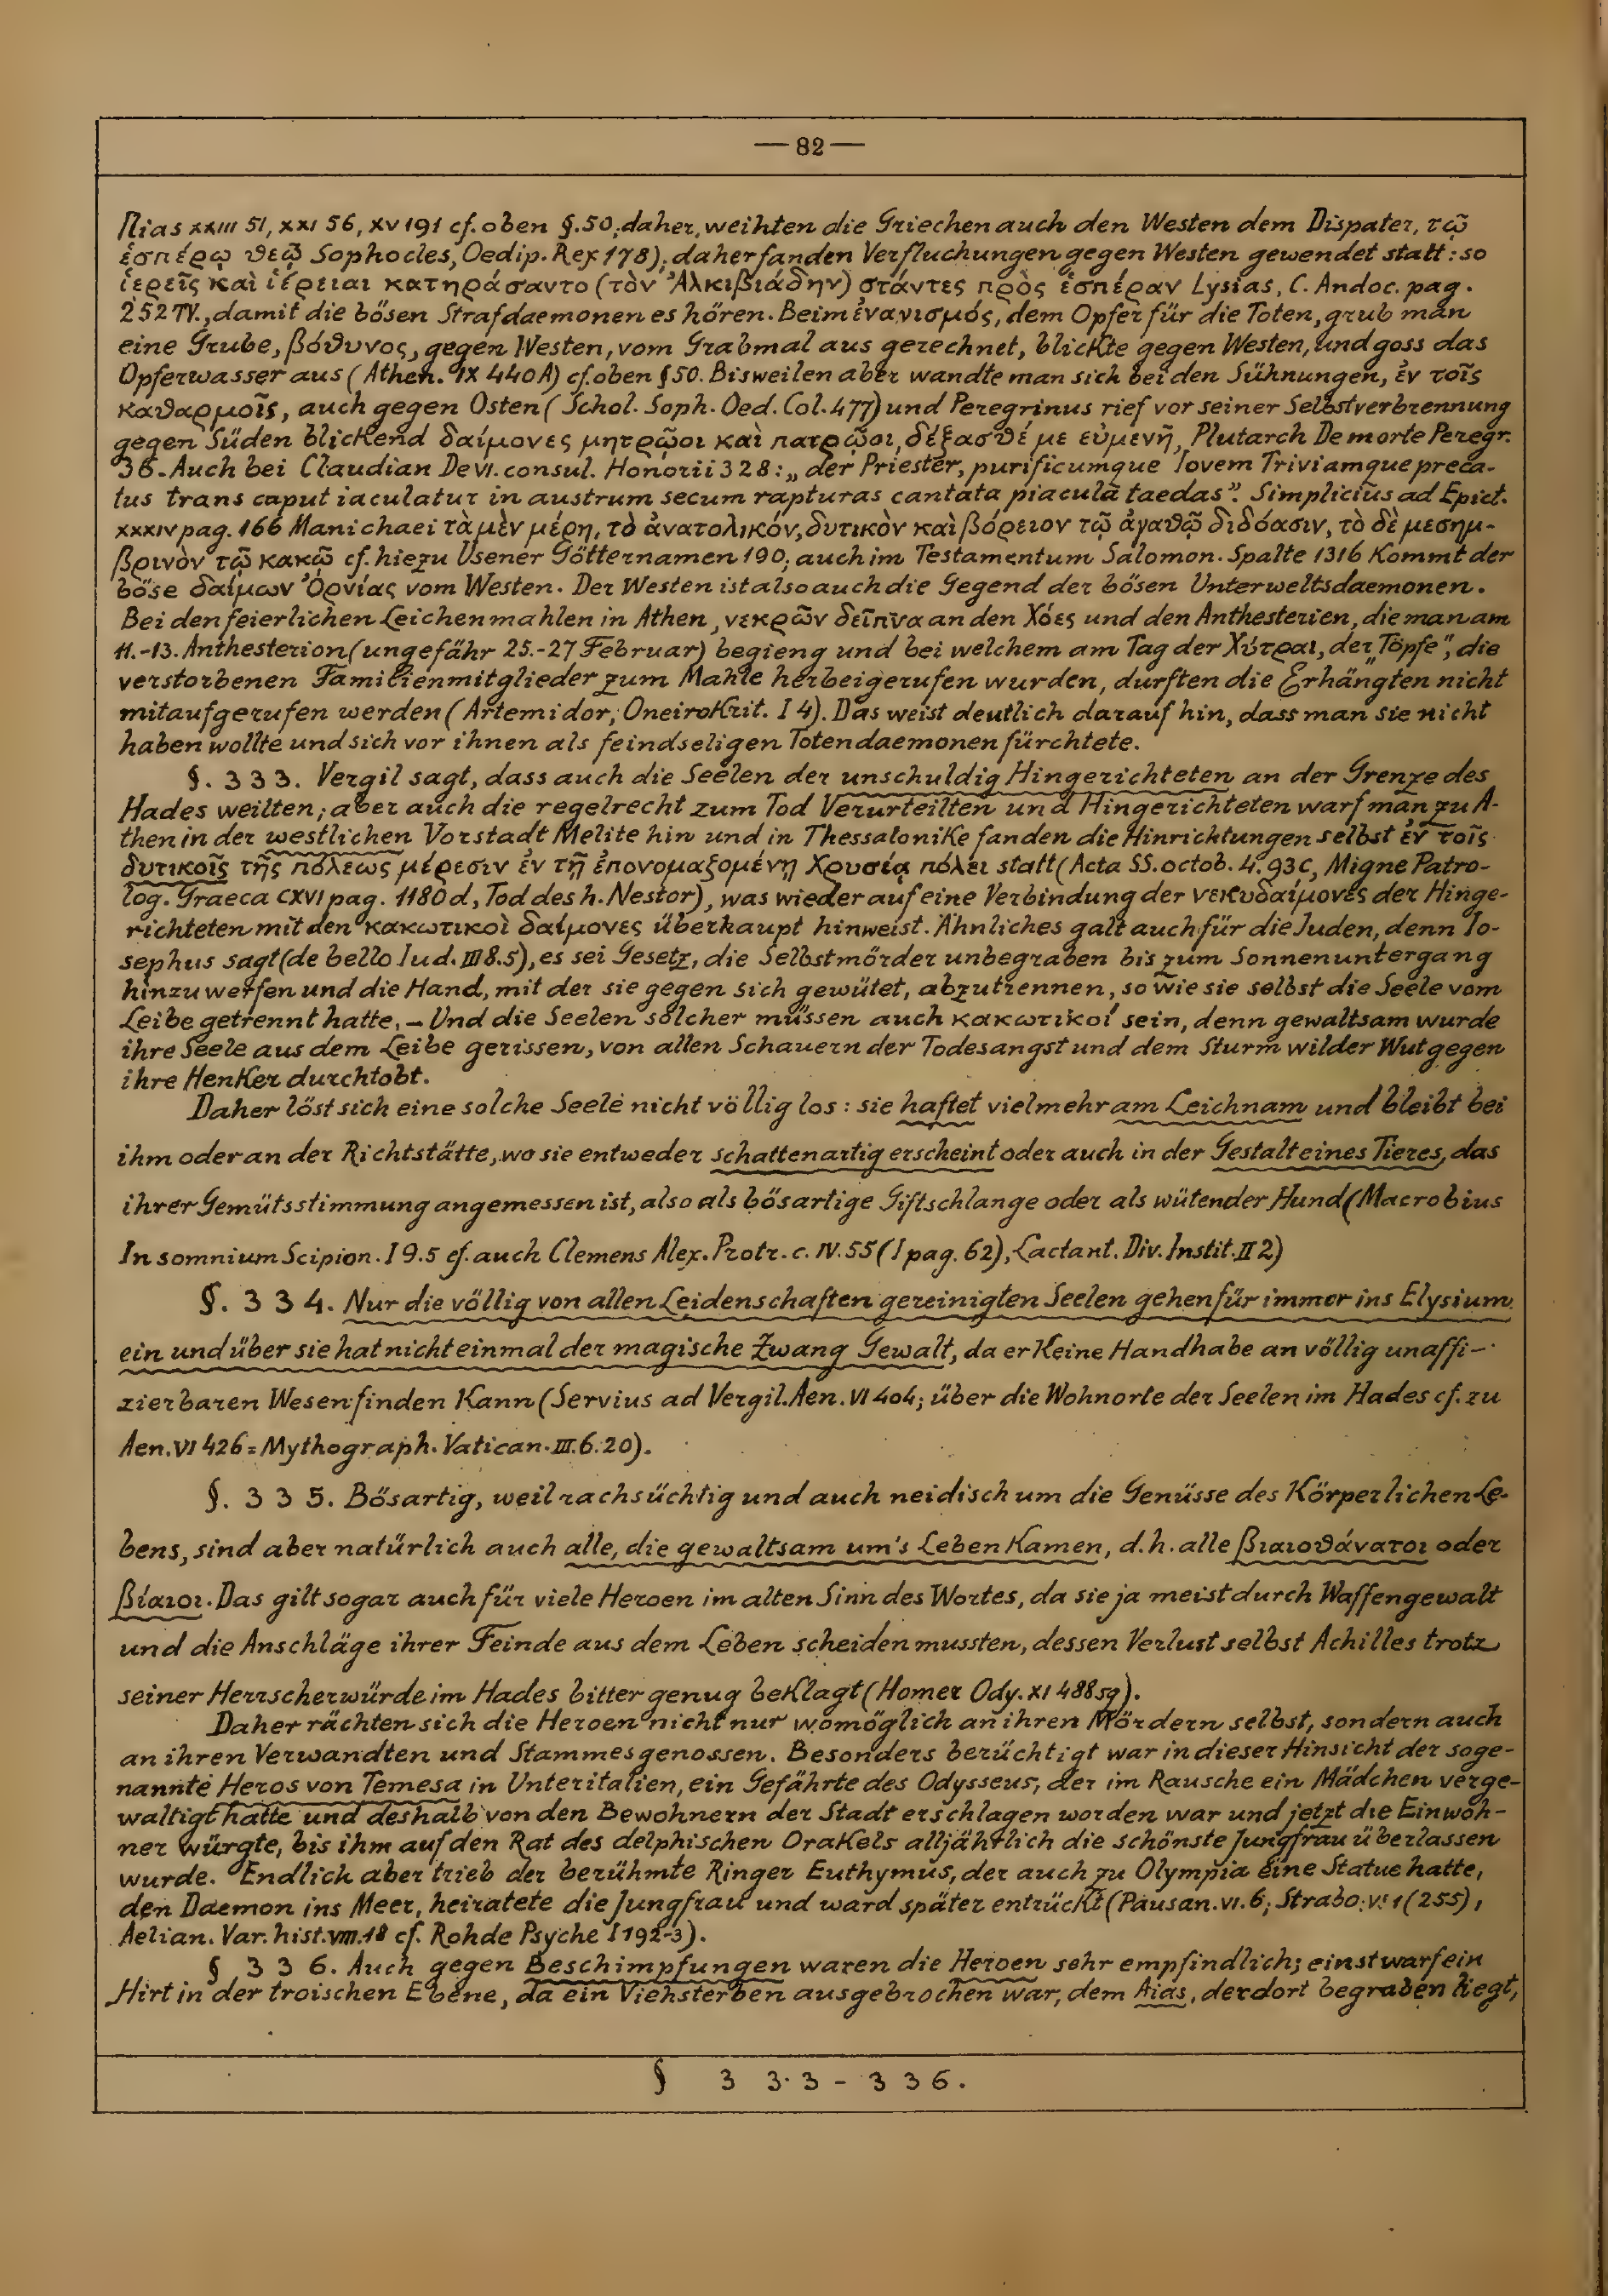 — 82 —
Ilias XXIII 51, XXI 56, XV 191 cf. oben §.50, daher, weihten die Griechen auch den Westen dem Dispater, τῷ
ἑσπέρῳ θεῷ Sophocles, Oedip. Rex 178); daher fanden Verfluchungen gegen Westen gewendet statt: so
ἱερεῖς καὶ ἱέρειαι κατηράσαντο (τὸν Ἀλκιβιάδην) στάντες πρὸς ἑσπέραν Lysias, C. Andoc. pag.
252 TY., damit die bösen Strafdaemonen es hören. Beim ἐναγισμός, dem Opfer für die Toten, grub man
eine Grube, βόθυνος, gegen Westen, vom Grabmal aus gerechnet, blickte gegen Westen, und goss das
Opferwasser aus (Athen. IX 440 A) cf. oben §50. Bisweilen aber wandte man sich bei den Sühnungen, ἐν τοῖς
καθαρμοῖς, auch gegen Osten (Schol. Soph. Oed. Col. 477) und Peregrinus rief vor seiner Selbstverbrennung
gegen Süden blickend δαίμονες μητρῷοι καὶ πατρῷοι, δέξασθέ με εὐμενῆ, Plutarch De morte Peregr.
36. Auch bei Claudian De VI. consul. Honorii 328: „der Priester, purificumque Iovem Triviamque preca-
tus trans caput iaculatur in austrum secum rapturas cantata piacula taedas”. Simplicius ad Epict.
XXXIV pag. 166 Manichaei τὰ μὲν μέρη, τὸ ἀνατολικόν, δυτικὸν καὶ βόρειον τῷ ἀγαθῷ διδόασιν, τὸ δὲ μεσημ-
βρινὸν τῷ κακῷ cf. hiezu Usener Götternamen 190; auch im Testamentum Salomon. Spalte 1316 kommt der
böse δαίμων Ὀρνίας vom Westen. Der Westen ist also auch die Gegend der bösen Unterweltsdaemonen.
Bei den feierlichen Leichenmahlen in Athen, νεκρῶν δεῖπνα an den Χόες und den Anthesterien, die man am
11.-13. Anthesterion (ungefähr 25.-27 Februar) begieng und bei welchem am Tag der Χύτραι, der „Töpfe”, die
verstorbenen Familienmitglieder zum Mahle herbeigerufen wurden, durften die Erhängten nicht
mitaufgerufen werden (Artemidor, Oneirokrit. I 4). Das weist deutlich darauf hin, dass man sie nicht
haben wollte und sich vor ihnen als feindseligen Totendaemonen fürchtete.
§. 333. Vergil sagt, dass auch die Seelen der unschuldig Hingerichteten an der Grenze des
Hades weilten; aber auch die regelrecht zum Tod Verurteilten und Hingerichteten warf man zu A-
then in der westlichen Vorstadt Melite hin und in Thessalonike fanden die Hinrichtungen selbst ἐν τοῖς
δυτικοῖς τῆς πόλεως μέρεσιν ἐν τῇ ἐπονομαζομένῃ Χρυσίᾳ πόλει statt (Acta SS. octob. 4. 93c, Migne Patro-
log. Graeca CXVI pag. 1180 d, Tod des h. Nestor), was wieder auf eine Verbindung der νεκυδαίμονες der Hinge-
richteten mit den κακωτικοὶ δαίμονες überhaupt hinweist. Ähnliches galt auch für die Juden, denn Io-
sephus sagt (de bello Iud. III 8.5), es sei Gesetz, die Selbstmörder unbegraben bis zum Sonnenuntergang
hinzuwerfen und die Hand, mit der sie gegen sich gewütet, abzutrennen, so wie sie selbst die Seele vom
Leibe getrennt hatte. — Und die Seelen solcher müssen auch κακωτικοί sein, denn gewaltsam wurde
ihre Seele aus dem Leibe gerissen, von allen Schauern der Todesangst und dem Sturm wilder Wut gegen
ihre Henker durchtobt.
Daher löst sich eine solche Seele nicht völlig los: sie haftet vielmehr am Leichnam und bleibt bei
ihm oder an der Richtstätte, wo sie entweder schattenartig erscheint oder auch in der Gestalt eines Tieres, das
ihrer Gemütsstimmung angemessen ist, also als bösartige Giftschlange oder als wütender Hund (Macrobius
In somnium Scipion. I 9.5 cf. auch Clemens Alex. Protr. c. IV. 55 (I pag. 62), Lactant. Div. Instit. II 2)
§. 334. Nur die völlig von allen Leidenschaften gereinigten Seelen gehen für immer ins Elysium
ein und über sie hat nicht einmal der magische Zwang Gewalt, da er keine Handhabe an völlig unaffi-
zierbaren Wesen finden kann (Servius ad Vergil. Aen. VI 404; über die Wohnorte der Seelen im Hades cf. zu
Aen. VI 426 = Mythograph. Vatican. III. 6. 20).
§. 335. Bösartig, weil rachsüchtig und auch neidisch um die Genüsse des körperlichen Le-
bens, sind aber natürlich auch alle, die gewaltsam um's Leben kamen, d. h. alle βιαιοθάνατοι oder
βίαιοι. Das gilt sogar auch für viele Heroen im alten Sinn des Wortes, da sie ja meist durch Waffengewalt
und die Anschläge ihrer Feinde aus dem Leben scheiden mussten, dessen Verlust selbst Achilles trotz
seiner Herrscherwürde im Hades bitter genug beklagt (Homer Ody. XI 488 sq).
Daher rächten sich die Heroen nicht nur womöglich an ihren Mördern selbst, sondern auch
an ihren Verwandten und Stammesgenossen. Besonders berüchtigt war in dieser Hinsicht der soge-
nannte Heros von Temesa in Unteritalien, ein Gefährte des Odysseus, der im Rausche ein Mädchen verge-
waltigt hatte und deshalb von den Bewohnern der Stadt erschlagen worden war und jetzt die Einwoh-
ner würgte, bis ihm auf den Rat des delphischen Orakels alljährlich die schönste Jungfrau überlassen
wurde. Endlich aber trieb der berühmte Ringer Euthymus, der auch zu Olympia eine Statue hatte,
den Daemon ins Meer, heiratete die Jungfrau und ward später entrückt (Pausan. VI. 6; Strabo. V. 1 (255),
Aelian. Var. hist. VIII. 18 cf. Rohde Psyche I 192-3).
§ 336. Auch gegen Beschimpfungen waren die Heroen sehr empfindlich; einst warf ein
Hirt in der troischen Ebene, da ein Viehsterben ausgebrochen war, dem Aias, der dort begraben liegt,
§ 333-336.